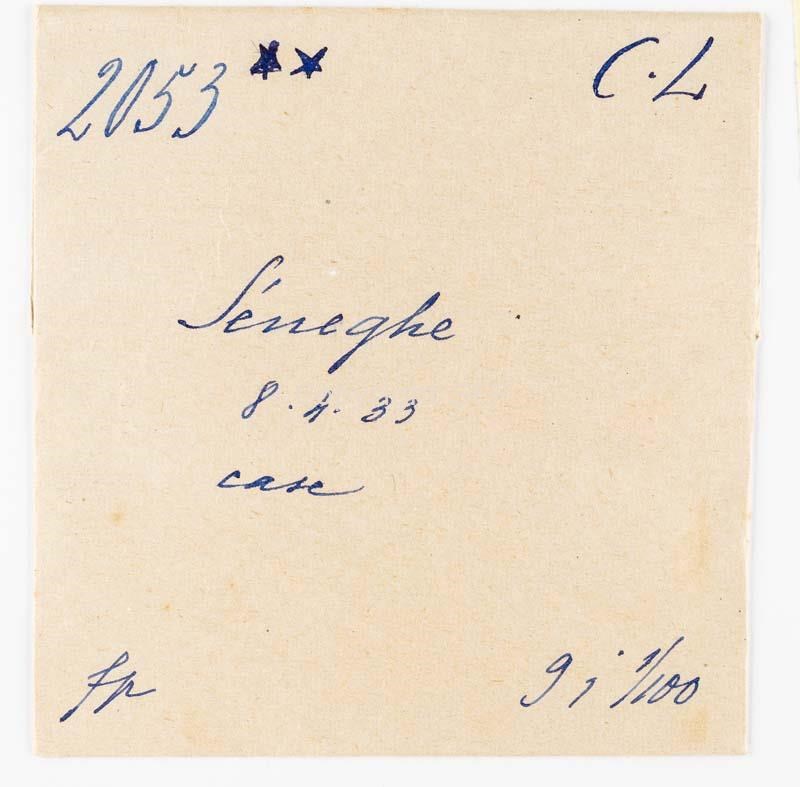 2053 ★★ C.L
Séneghe
8.4.33
case
fp
9 i 1/100